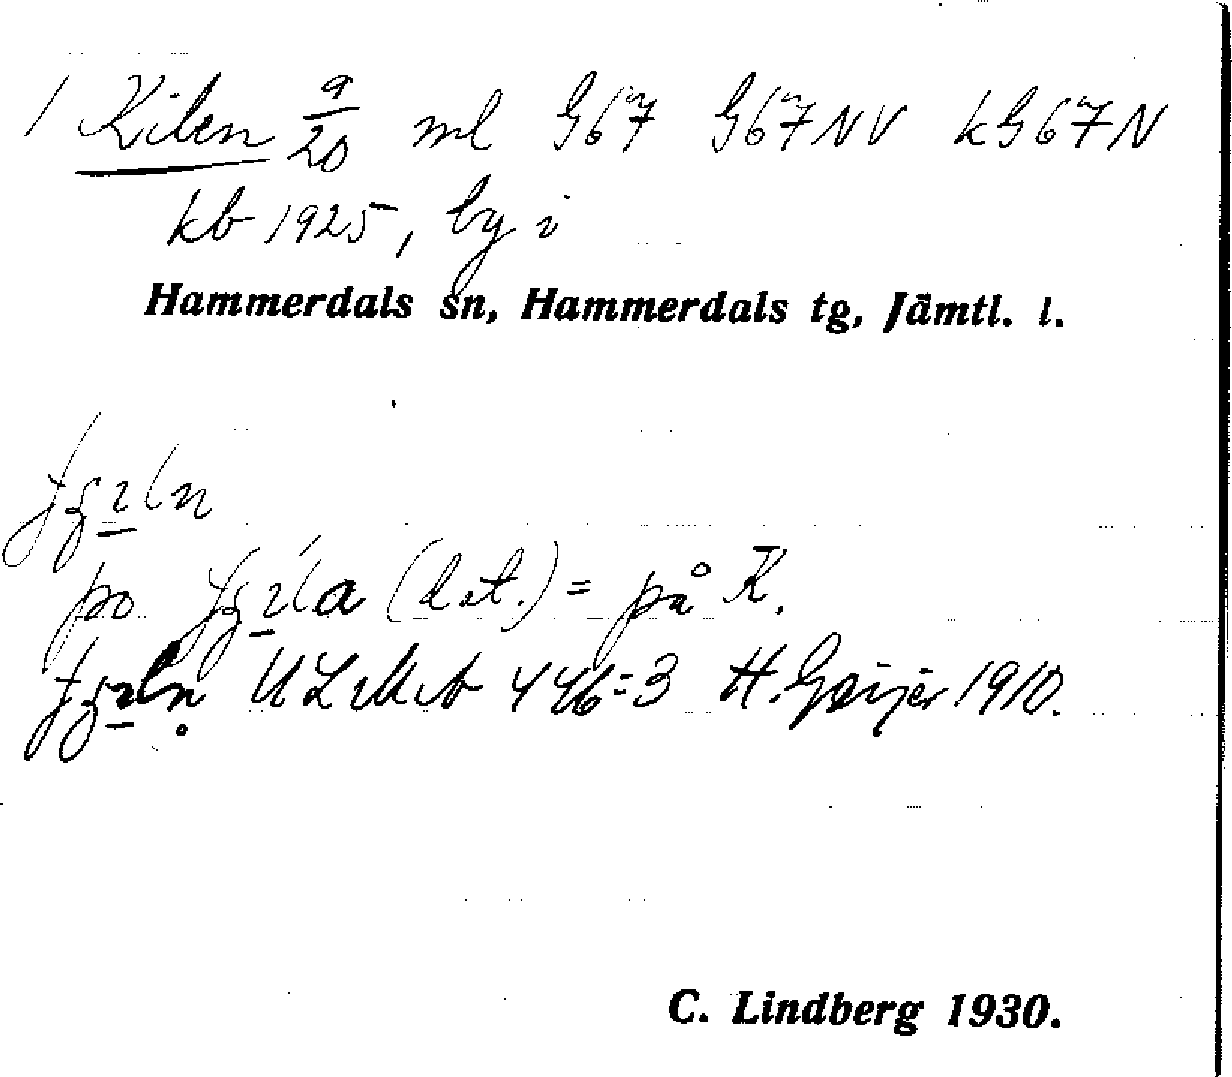 1 Kilen 9/20 ml G67 G67NV kG67N
kb 1925, by i
Hammerdals sn, Hammerdals tg, Jämtl. l.
po (dat.) = på K.
ULMA 446:3 H. Geijer 1910.
C. Lindberg 1930.